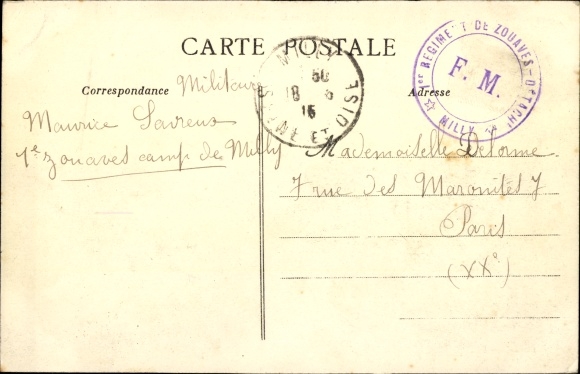 CARTE POSTALE
Correspondance Militaire
Adresse
MILLY
18 - 5
15
SEINE ET OISE
1er REGIMENT DE ZOUAVES - DÉTACHt
F. M.
MILLY
Maurice
1e zouaves camp de Milly
Mademoiselle Delorme.
7 rue des Maronites 7
Paris
(XXe)